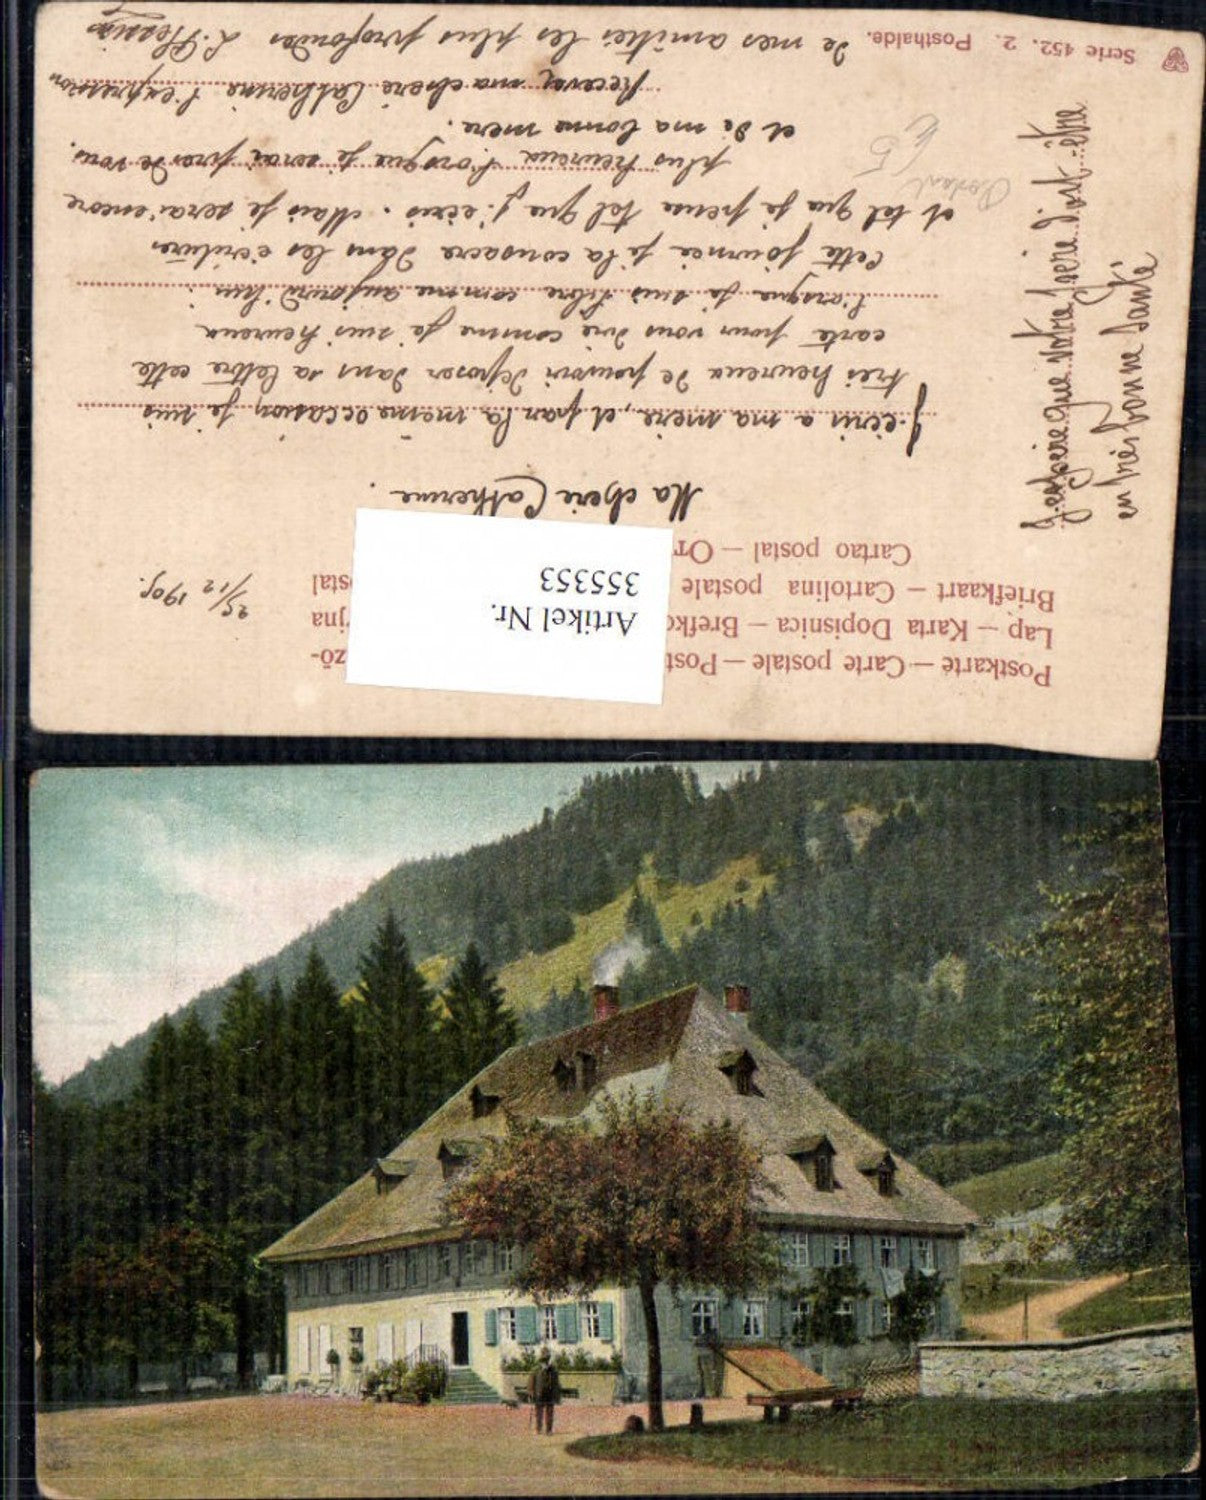 Postkarte – Carte postale – Post
zö-
Lap – Karta Dopisnica – Brefko
rjna
Briefkaart – Cartolina postale
stal
Cartao postal – От
Artikel Nr.
355353
25/12 1905.
Ma chere Catherine.
J'ecris a ma mere, et par la meme occasion, je suis
trés heureux de pouvoir deposer dans sa lettre cette
carte pour vous dire comme je suis heureux
lorsque je suis libre comme aujourd'hui.
Cette journeé je la consacre dans les ecritures
et tel que je pense tel que j'ecris. Mais je serai encore
plus heureux lorsque je serai pres de vous.
et de ma bonne mere.
Recevez ma chere Catherine l'expression
de mes amitiés les plus profondes L.
J'espere que votre
en trés bonne Santé
Serie 452. 2. Posthalde.